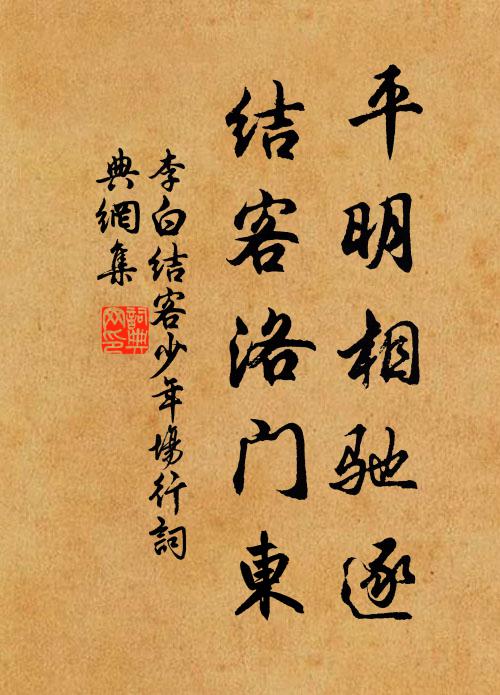 平明相驰逐
结客洛门東
李白结客少年場行詞
典網集
詞典网印